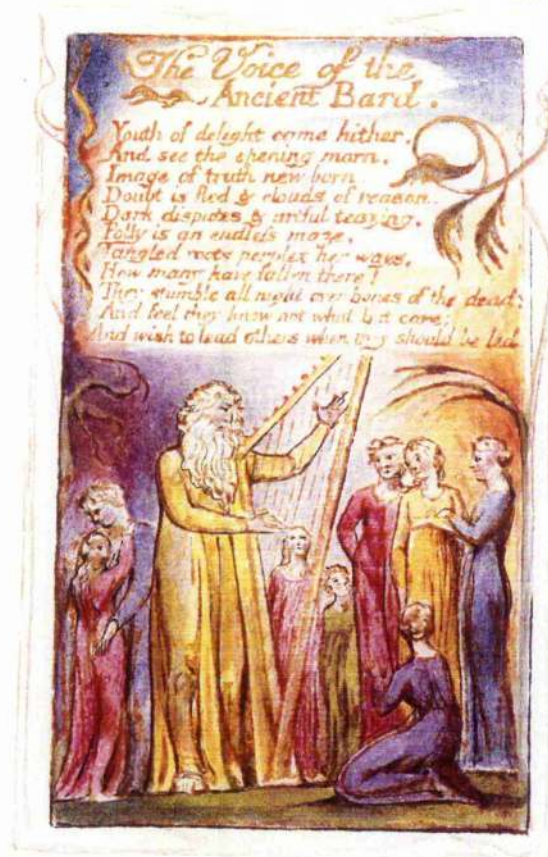 The Voice of the
Ancient Bard.
Youth of delight come hither.
And see the opening morn,
Image of truth new born
Doubt is fled & clouds of reason.
Dark disputes & artful teazing.
Folly is an endless maze,
Tangled roots perplex her ways,
How many have fallen there!
They stumble all night over bones of the dead;
And feel they know not what but care;
And wish to lead others when they should be led